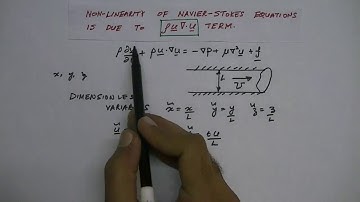 NON-LINEARITY OF NAVIER-STOKES EQUATIONS
IS DUE TO ρu·∇u TERM.
+ ρu·∇u = -∇P + μ∇²u + f
x, y, z
L U
DIMENSIONLESS
VARIABLES x̆ = x/L y̆ = y/L z̆ = z/L
ŭ tU/L